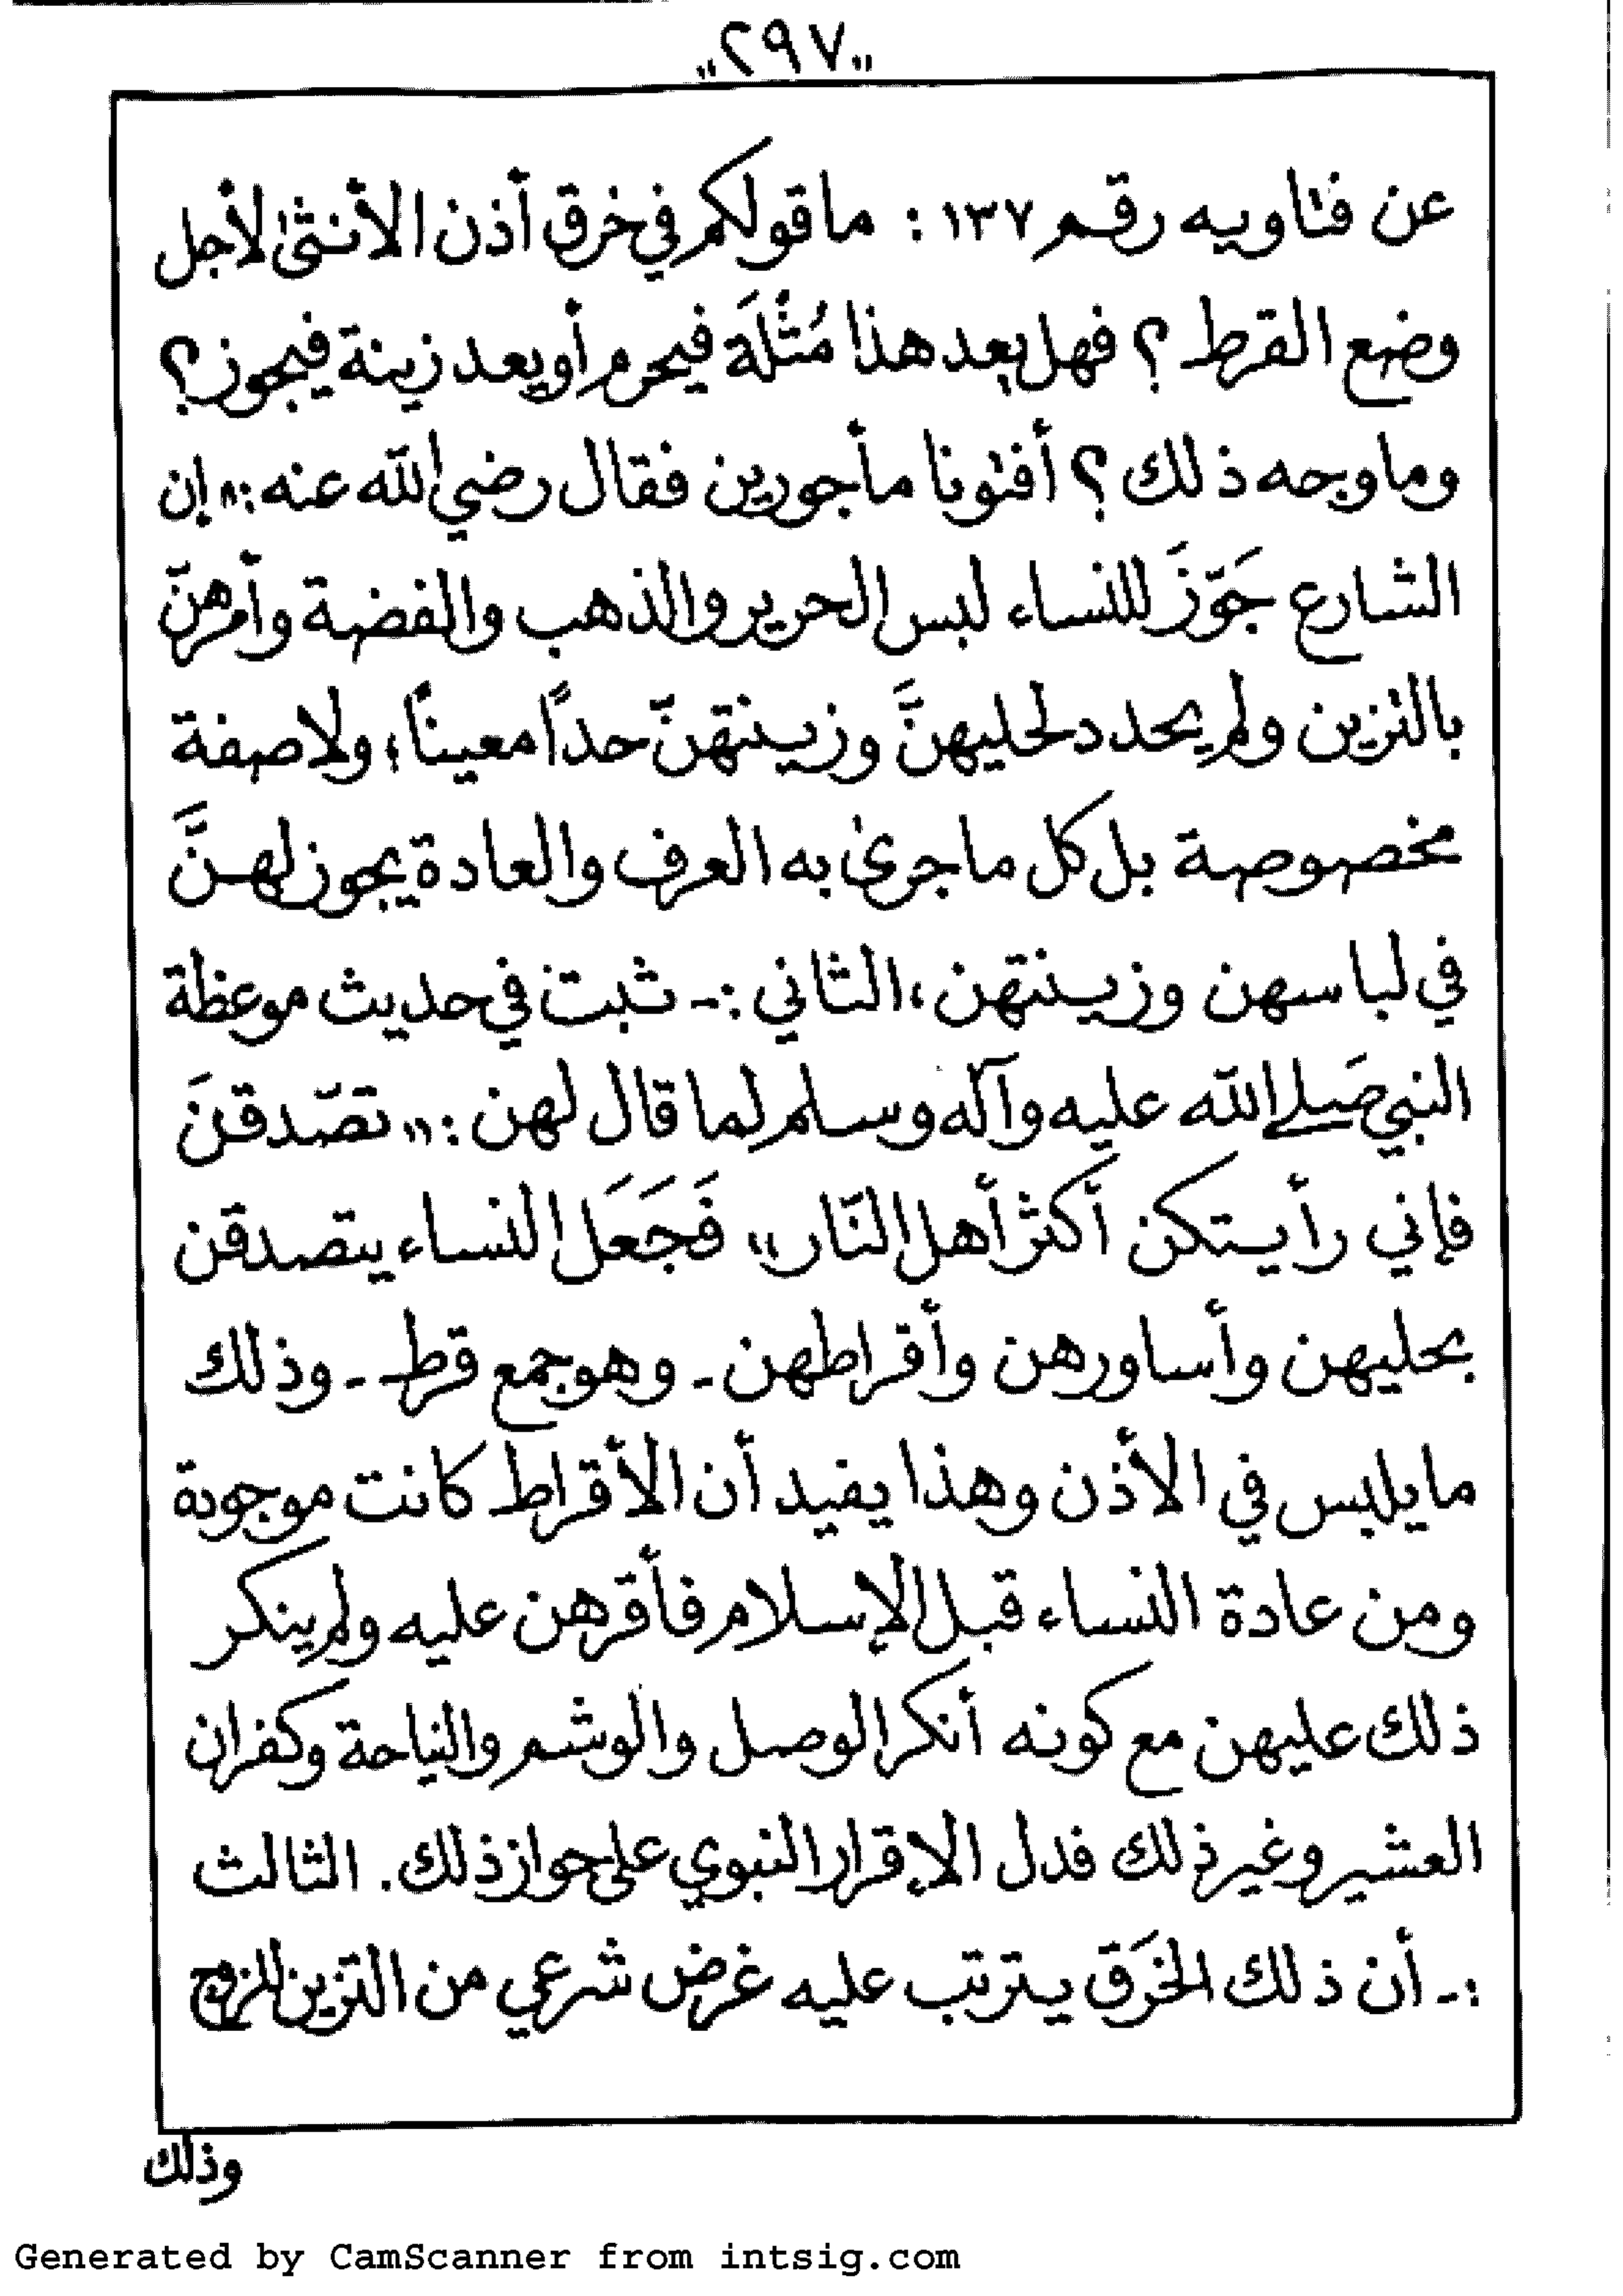 "٢٩٧"
عن فتاويه رقم ١٣٧ : ما قولكم في خرق أذن الأنثى لأجل
وضع القرط ؟ فهل يعد هذا مُثْلَة فيحرم أو يعد زينة فيجوز ؟
وما وجه ذلك ؟ أفتونا مأجورين فقال رضي الله عنه :" إن
الشارع جَوّزَ للنساء لبس الحرير والذهب والفضة وأمرهنّ
بالتزين ولم يحدد لحليهنَّ وزينتهنّ حدًا معينًا، ولا صفة
مخصوصة بل كل ما جرى به العرف والعادة يجوز لهنَّ
في لباسهن وزينتهن، الثاني :- ثبت في حديث موعظة
النبي صَلى الله عليه وآله وسلم لما قال لهن :" تصّدقنَ
فإني رأيتكن أكثر أهل النّار" فَجَعَل النساء يتصدقن
بحليهن وأساورهن وأقراطهن - وهو جمع قرط - وذلك
ما يلبس في الأذن وهذا يفيد أن الأقراط كانت موجودة
ومن عادة النساء قبل الإسلام فأقرهن عليه ولم ينكر
ذلك عليهن مع كونه أنكر الوصل والوشم والنياحة وكفران
العشير وغير ذلك فدل الإقرار النبوي على جواز ذلك. الثالث
:- أن ذلك الخَرَق يترتب عليه غرض شرعي من التزين للزوج
وذلك
Generated by CamScanner from intsig.com